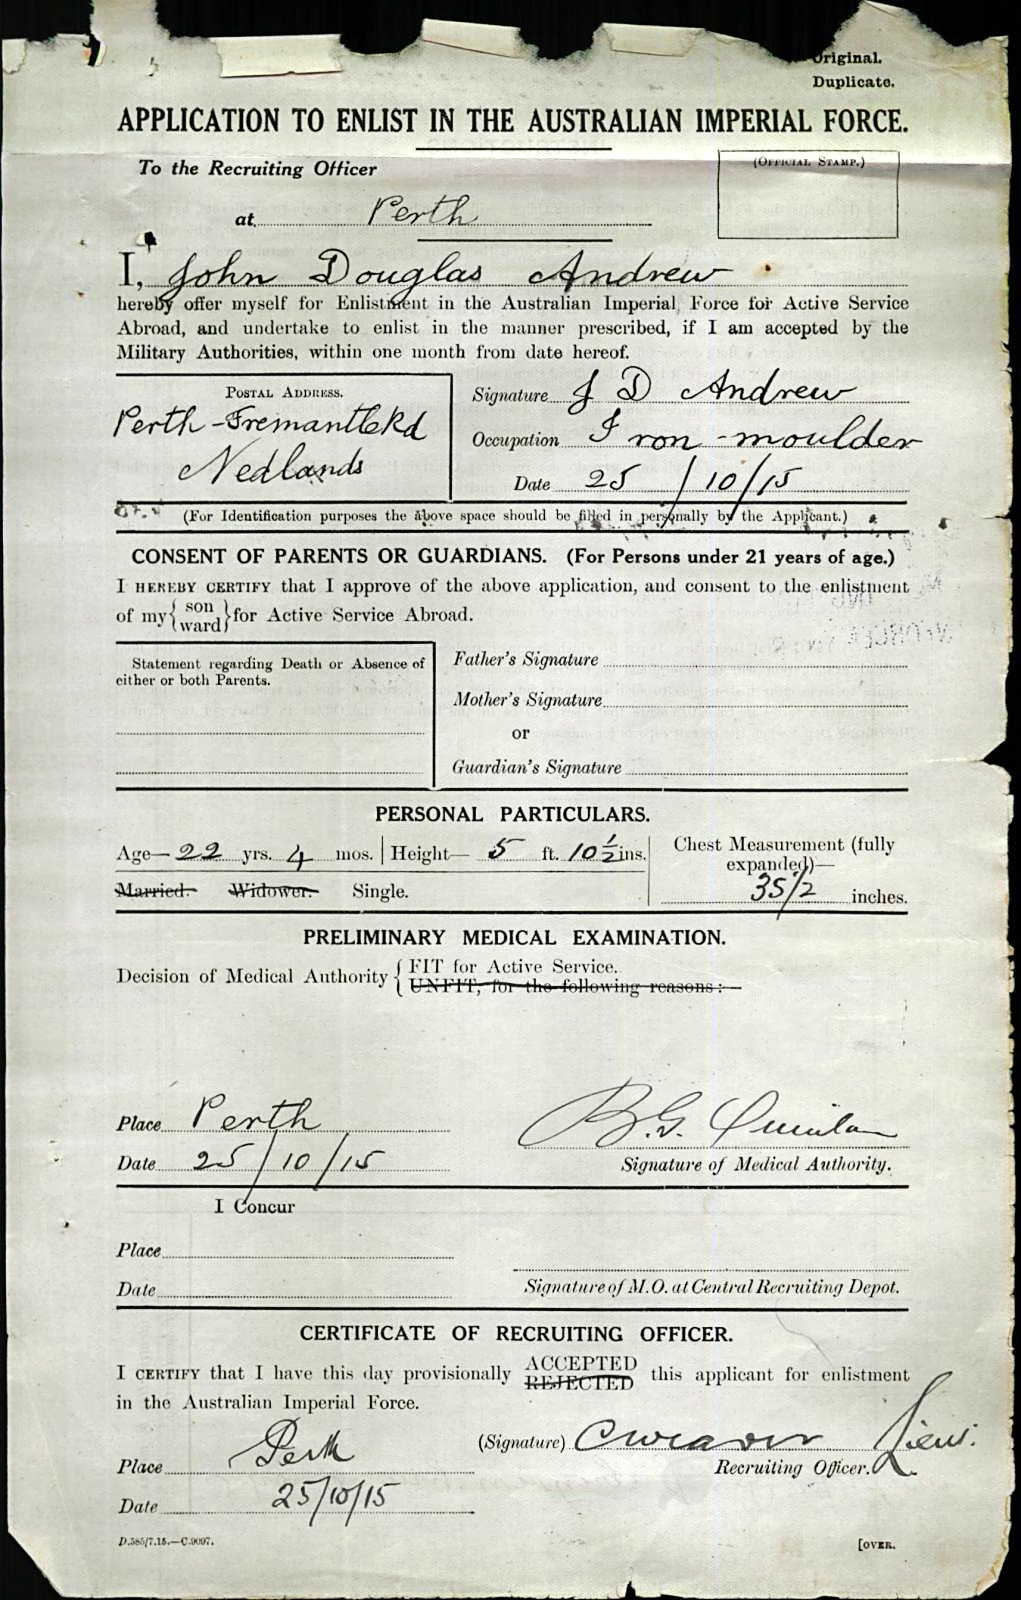 Original.
Duplicate.
APPLICATION TO ENLIST IN THE AUSTRALIAN IMPERIAL FORCE.
To the Recruiting Officer
(OFFICIAL STAMP.)
at Perth
I, John Douglas Andrew
hereby offer myself for Enlistment in the Australian Imperial Force for Active Service
Abroad, and undertake to enlist in the manner prescribed, if I am accepted by the
Military Authorities, within one month from date hereof.
POSTAL ADDRESS.
Perth-Fremantle Rd
Nedlands
Signature J D Andrew
Occupation Iron-moulder
Date 25/10/15
(For Identification purposes the above space should be filled in personally by the Applicant.)
CONSENT OF PARENTS OR GUARDIANS. (For Persons under 21 years of age.)
I HEREBY CERTIFY that I approve of the above application, and consent to the enlistment
of my {son ward} for Active Service Abroad.
Statement regarding Death or Absence of
either or both Parents.
Father's Signature
Mother's Signature
or
Guardian's Signature
PERSONAL PARTICULARS.
Age—22 yrs. 4 mos. Height—5 ft. 10½ ins.
Chest Measurement (fully
expanded)—
35½ inches.
Married. Widower. Single.
PRELIMINARY MEDICAL EXAMINATION.
Decision of Medical Authority { FIT for Active Service.
UNFIT, for the following reasons:—
Place Perth
Date 25/10/15
B.G. Quinlan
Signature of Medical Authority.
I Concur
Place
Date
Signature of M.O. at Central Recruiting Depot.
CERTIFICATE OF RECRUITING OFFICER.
I CERTIFY that I have this day provisionally ACCEPTED REJECTED this applicant for enlistment
in the Australian Imperial Force.
(Signature) C Weaver Lieut.
Recruiting Officer.
Place Perth
Date 25/10/15
D.585/7.15.—C.9097.
[OVER.